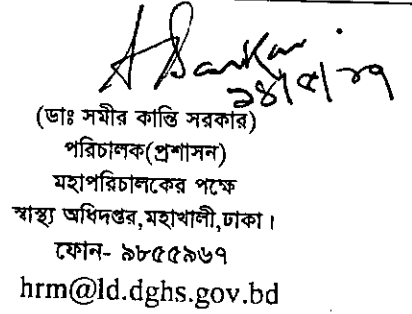 A Sarkar
২৪/৫/২৭
(ডাঃ সমীর কান্তি সরকার)
পরিচালক(প্রশাসন)
মহাপরিচালকের পক্ষে
স্বাস্থ্য অধিদপ্তর,মহাখালী,ঢাকা।
ফোন- ৯৮৫৫৯৬৭
hrm@ld.dghs.gov.bd